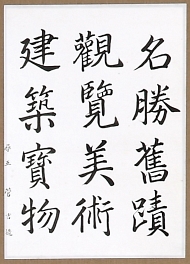 名勝舊蹟
觀覽美術
建築寶物